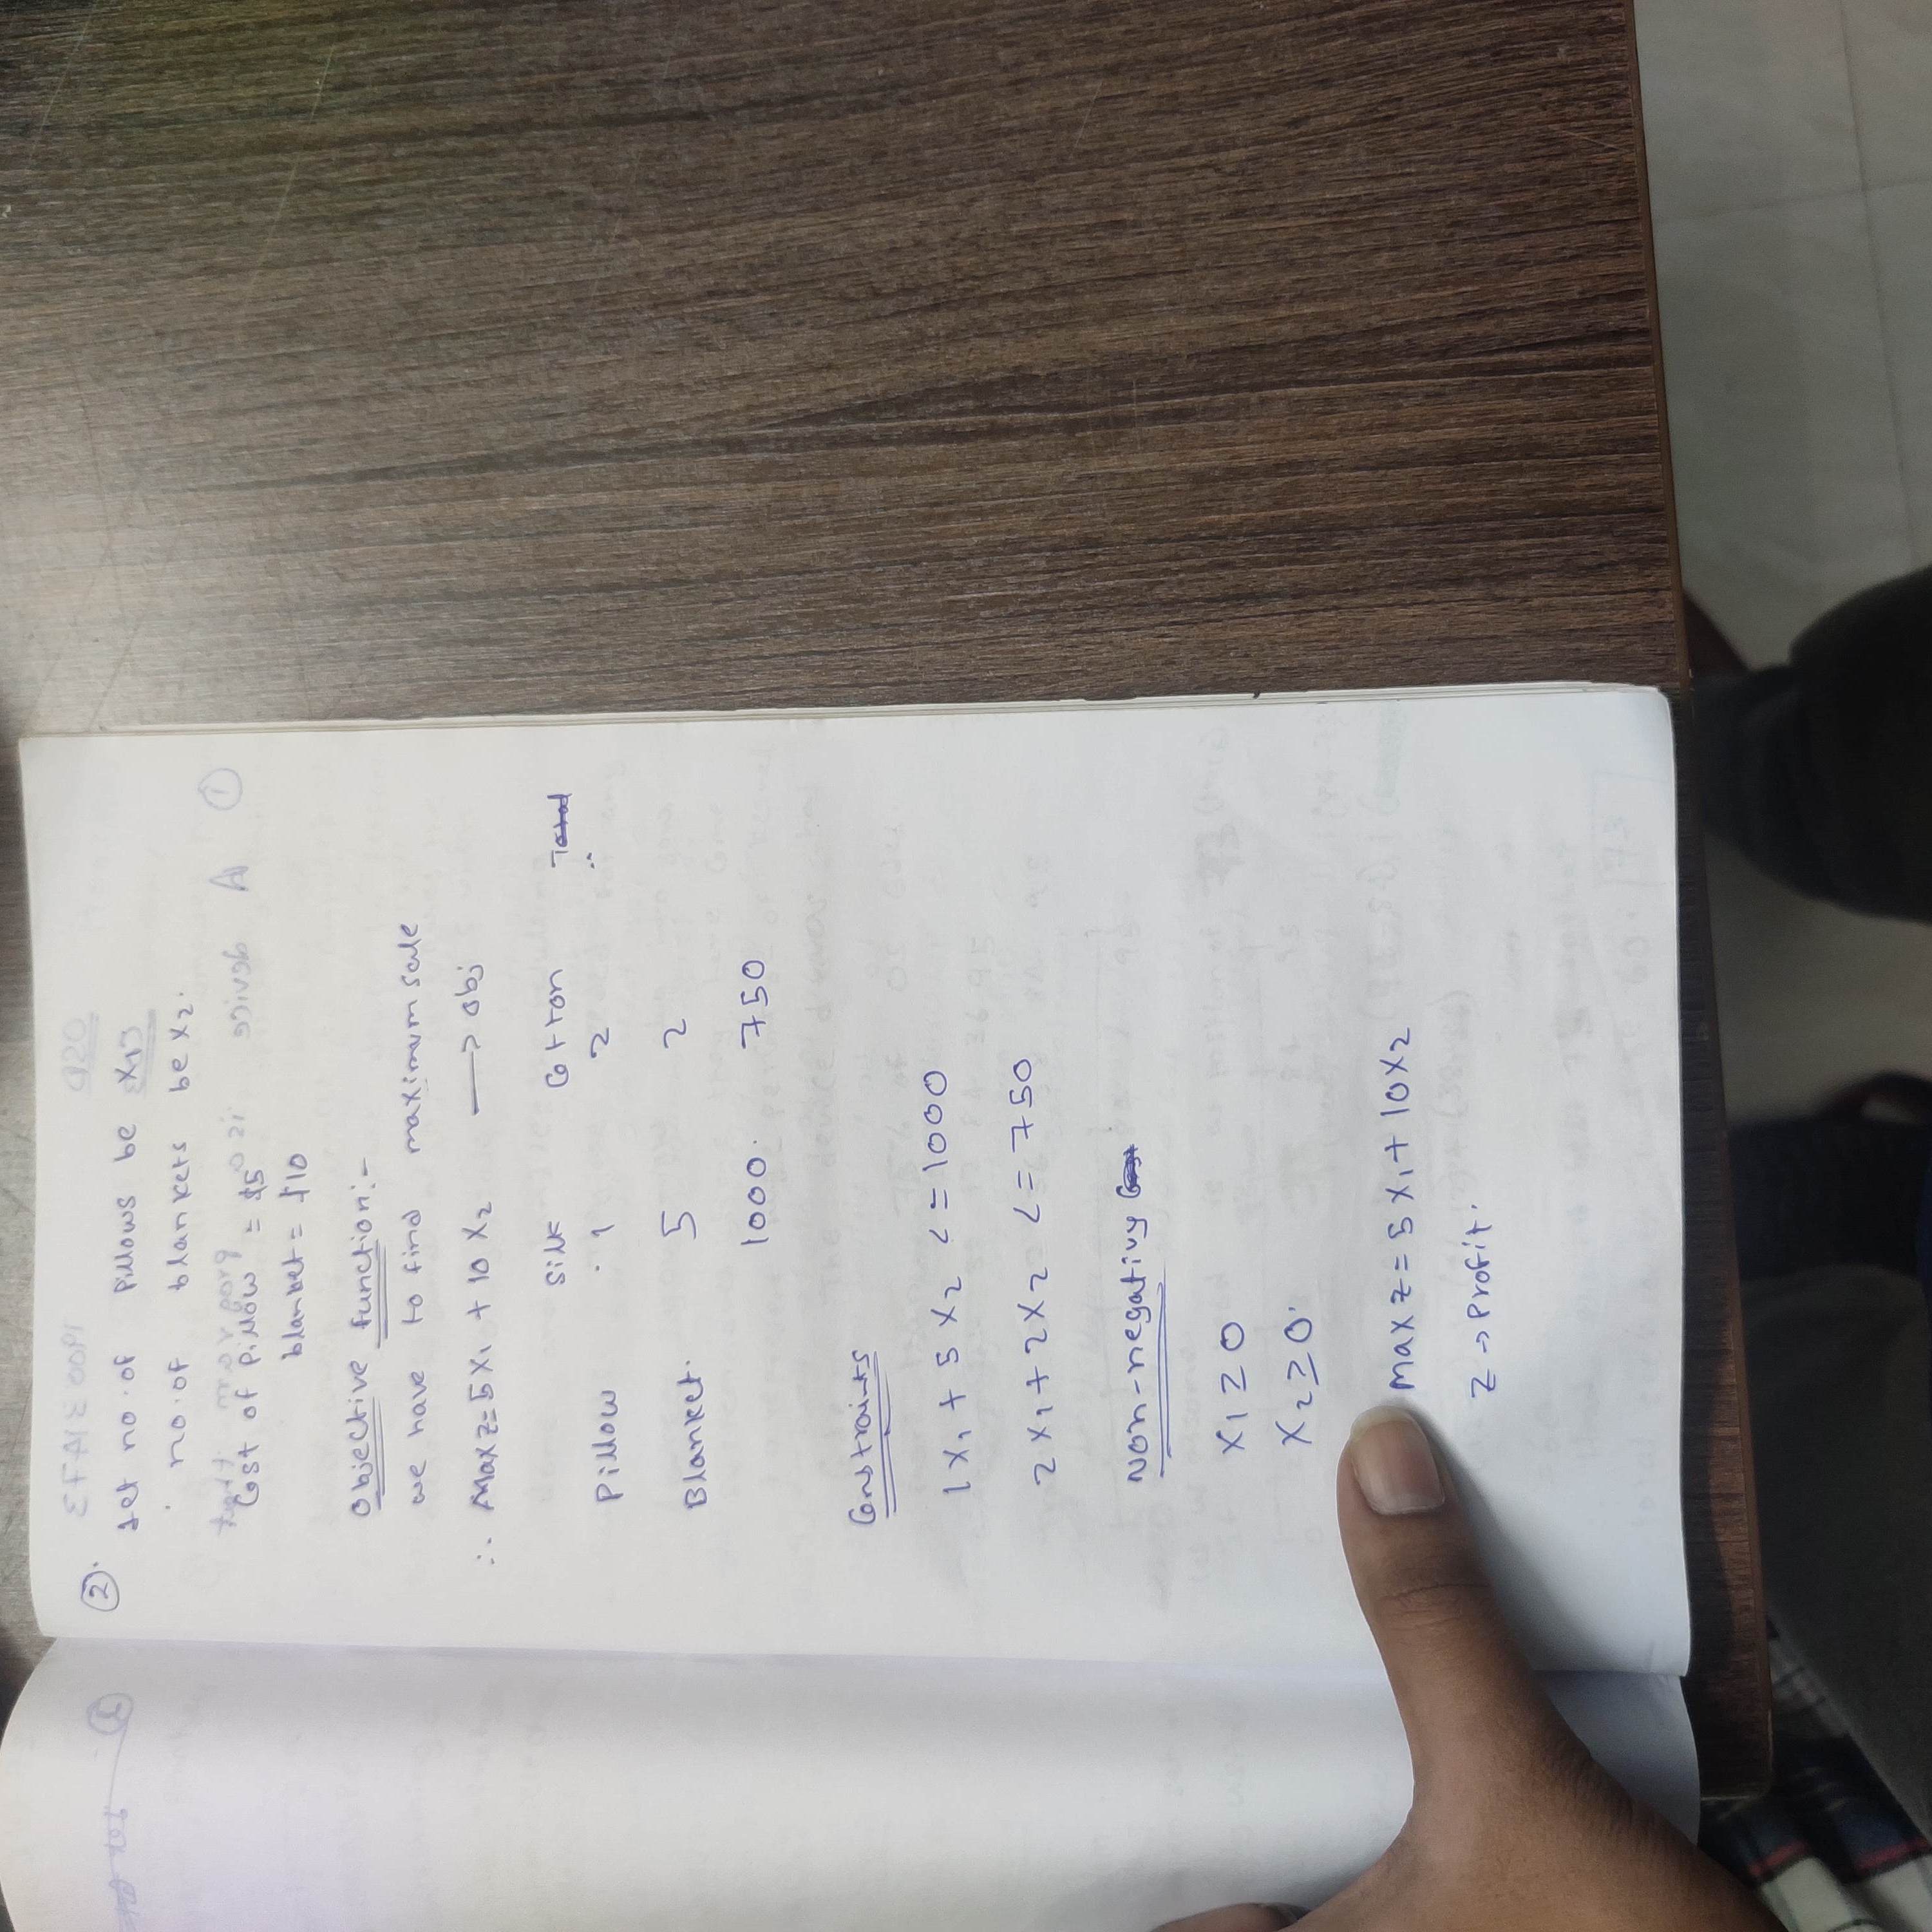 ②. Let no. of pillows be x₁,
no. of blankets be x₂.
Cost of pillow = $5
blanket = $10
Objective function:-
we have to find maximum sale
∴ Max z = 5x₁ + 10x₂ → obj
Silk Cotton
Pillow 1 2
Blanket. 5 2
1000. 750
Constraints
1x₁ + 5x₂ <= 1000
2x₁ + 2x₂ <= 750
Non-negativy
x₁ ≥ 0
x₂ ≥ 0.
max z = 5x₁ + 10x₂
z → Profit.